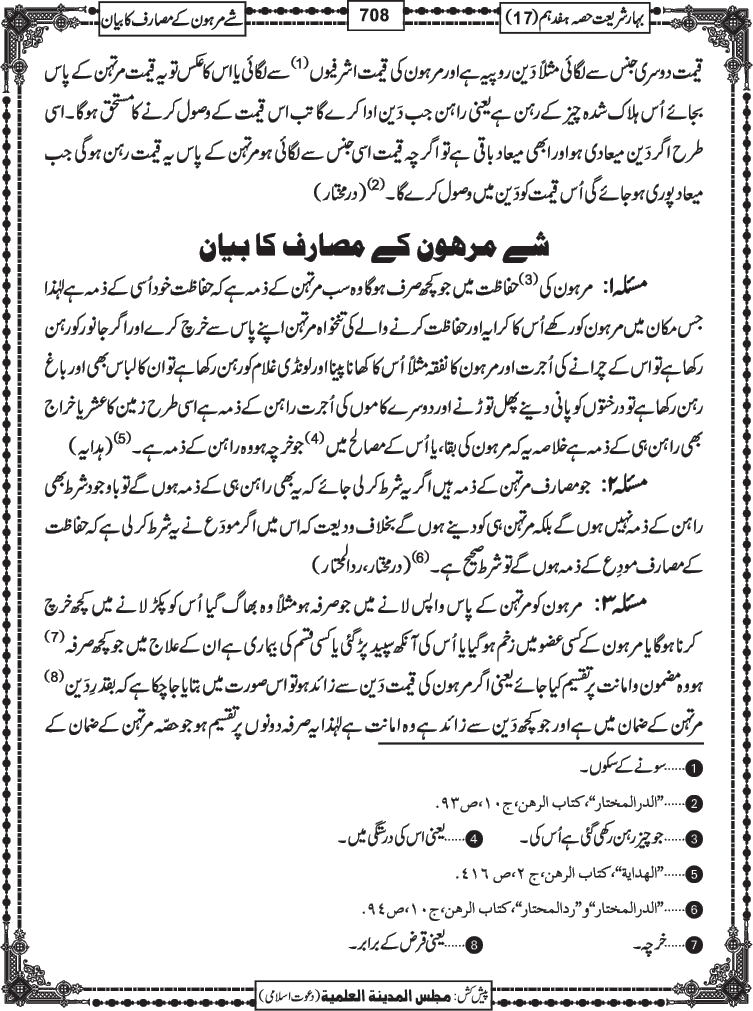 بہارشریعت حصہ ہفدہم (17)
708
شے مرہون کے مصارف کا بیان
قیمت دوسری جنس سے لگائی مثلاً دَین روپیہ ہے اور مرہون کی قیمت اشرفیوں (1) سے لگائی یا اس کا عکس تو یہ قیمت مرتہن کے پاس
بجائے اُس ہلاک شدہ چیز کے رہن ہے یعنی راہن جب دَین ادا کرے گا تب اس قیمت کے وصول کرنے کا مستحق ہوگا۔ اسی
طرح اگر دَین میعادی ہو اور ابھی میعاد باقی ہے تو اگرچہ قیمت اسی جنس سے لگائی ہو مرتہن کے پاس یہ قیمت رہن ہوگی جب
میعاد پوری ہوجائے گی اُس قیمت کو دَین میں وصول کرے گا۔ (2) (درمختار)
شے مرہون کے مصارف کا بیان
مسئلہ ۱: مرہون کی (3) حفاظت میں جو کچھ صرف ہوگا وہ سب مرتہن کے ذمہ ہے کہ حفاظت خود اُسی کے ذمہ ہے لہٰذا
جس مکان میں مرہون کو رکھے اُس کا کرایہ اور حفاظت کرنے والے کی تنخواہ مرتہن اپنے پاس سے خرچ کرے اور اگر جانور کو رہن
رکھا ہے تو اس کے چرانے کی اُجرت اور مرہون کا نفقہ مثلاً اُس کا کھانا پینا اور لونڈی غلام کو رہن رکھا ہے تو ان کا لباس بھی اور باغ
رہن رکھا ہے تو درختوں کو پانی دینے پھل توڑنے اور دوسرے کاموں کی اُجرت راہن کے ذمہ ہے اسی طرح زمین کا عشر یا خراج
بھی راہن ہی کے ذمہ ہے خلاصہ یہ کہ مرہون کی بقا، یا اُس کے مصالح میں (4) جو خرچہ ہو وہ راہن کے ذمہ ہے۔ (5) (ہدایہ)
مسئلہ ۲: جو مصارف مرتہن کے ذمہ ہیں اگر یہ شرط کرلی جائے کہ یہ بھی راہن ہی کے ذمہ ہوں گے تو باوجود شرط بھی
راہن کے ذمہ نہیں ہوں گے بلکہ مرتہن ہی کو دینے ہوں گے بخلاف ودیعت کہ اس میں اگر مودَع نے یہ شرط کرلی ہے کہ حفاظت
کے مصارف مودِع کے ذمہ ہوں گے تو شرط صحیح ہے۔ (6) (درمختار، ردالمحتار)
مسئلہ ۳: مرہون کو مرتہن کے پاس واپس لانے میں جو صرفہ ہو مثلاً وہ بھاگ گیا اُس کو پکڑ لانے میں کچھ خرچ
کرنا ہوگا یا مرہون کے کسی عضو میں زخم ہوگیا یا اُس کی آنکھ سپید پڑگئی یا کسی قسم کی بیماری ہے ان کے علاج میں جو کچھ صرفہ (7)
ہو وہ مضمون و امانت پر تقسیم کیا جائے یعنی اگر مرہون کی قیمت دَین سے زائد ہو تو اس صورت میں بتایا جاچکا ہے کہ بقدرِ دَین (8)
مرتہن کے ضمان میں ہے اور جو کچھ دَین سے زائد ہے وہ امانت ہے لہٰذا یہ صرفہ دونوں پر تقسیم ہو جو حصّہ مرتہن کے ضمان کے
1 ......سونے کے سکوں۔
2 ......”الدرالمختار“، کتاب الرهن، ج۱۰، ص۹۳.
3 ......جو چیز رہن رکھی گئی ہے اُس کی۔ 4 ......یعنی اس کی درستگی میں۔
5 ......”الهداية“، کتاب الرهن، ج۲، ص۴۱۶.
6 ......”الدرالمختار“ و”ردالمحتار“، کتاب الرهن، ج۱۰، ص۹۴.
7 ......خرچہ۔ 8 ......یعنی قرض کے برابر۔
پیش کش: مجلس المدینة العلمیة (دعوت اسلامی)